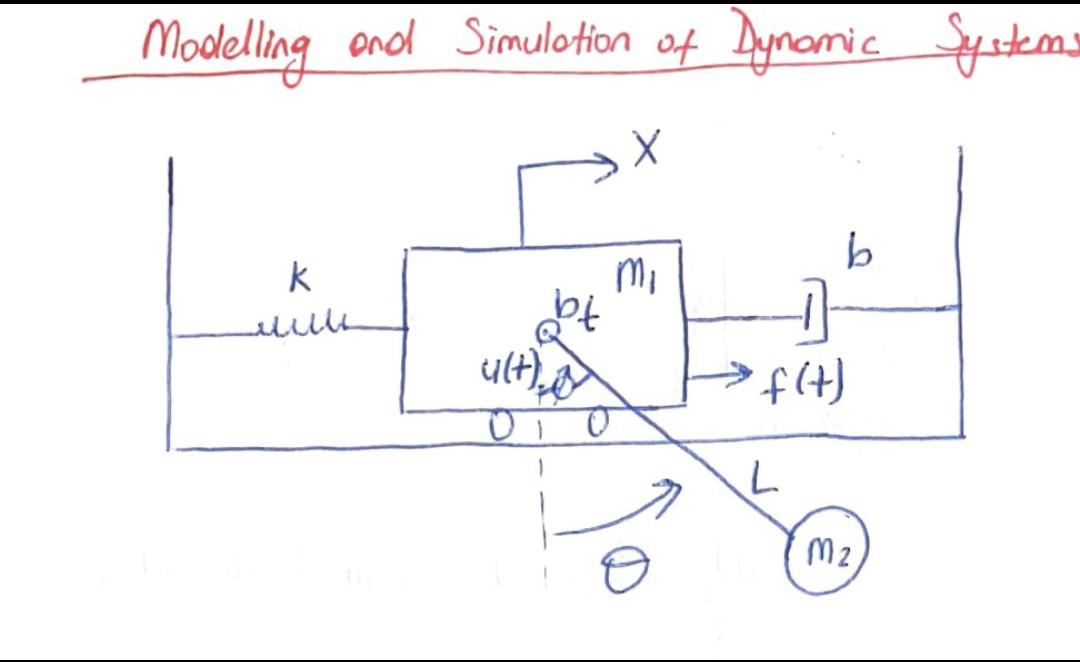 Modelling and Simulation of Dynamic Systems
X
k
m1
b
bt
u(t)
f(t)
L
θ
m2